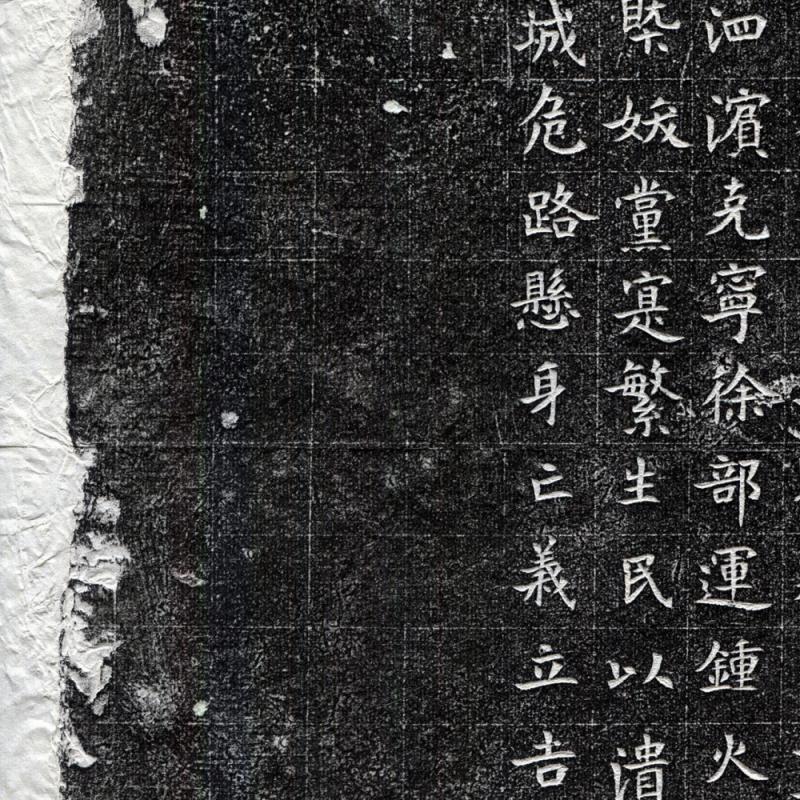 泗濵克寧徐部運鍾火
槩妖黨寔繁生民以潰
城危路懸身亡義立吉